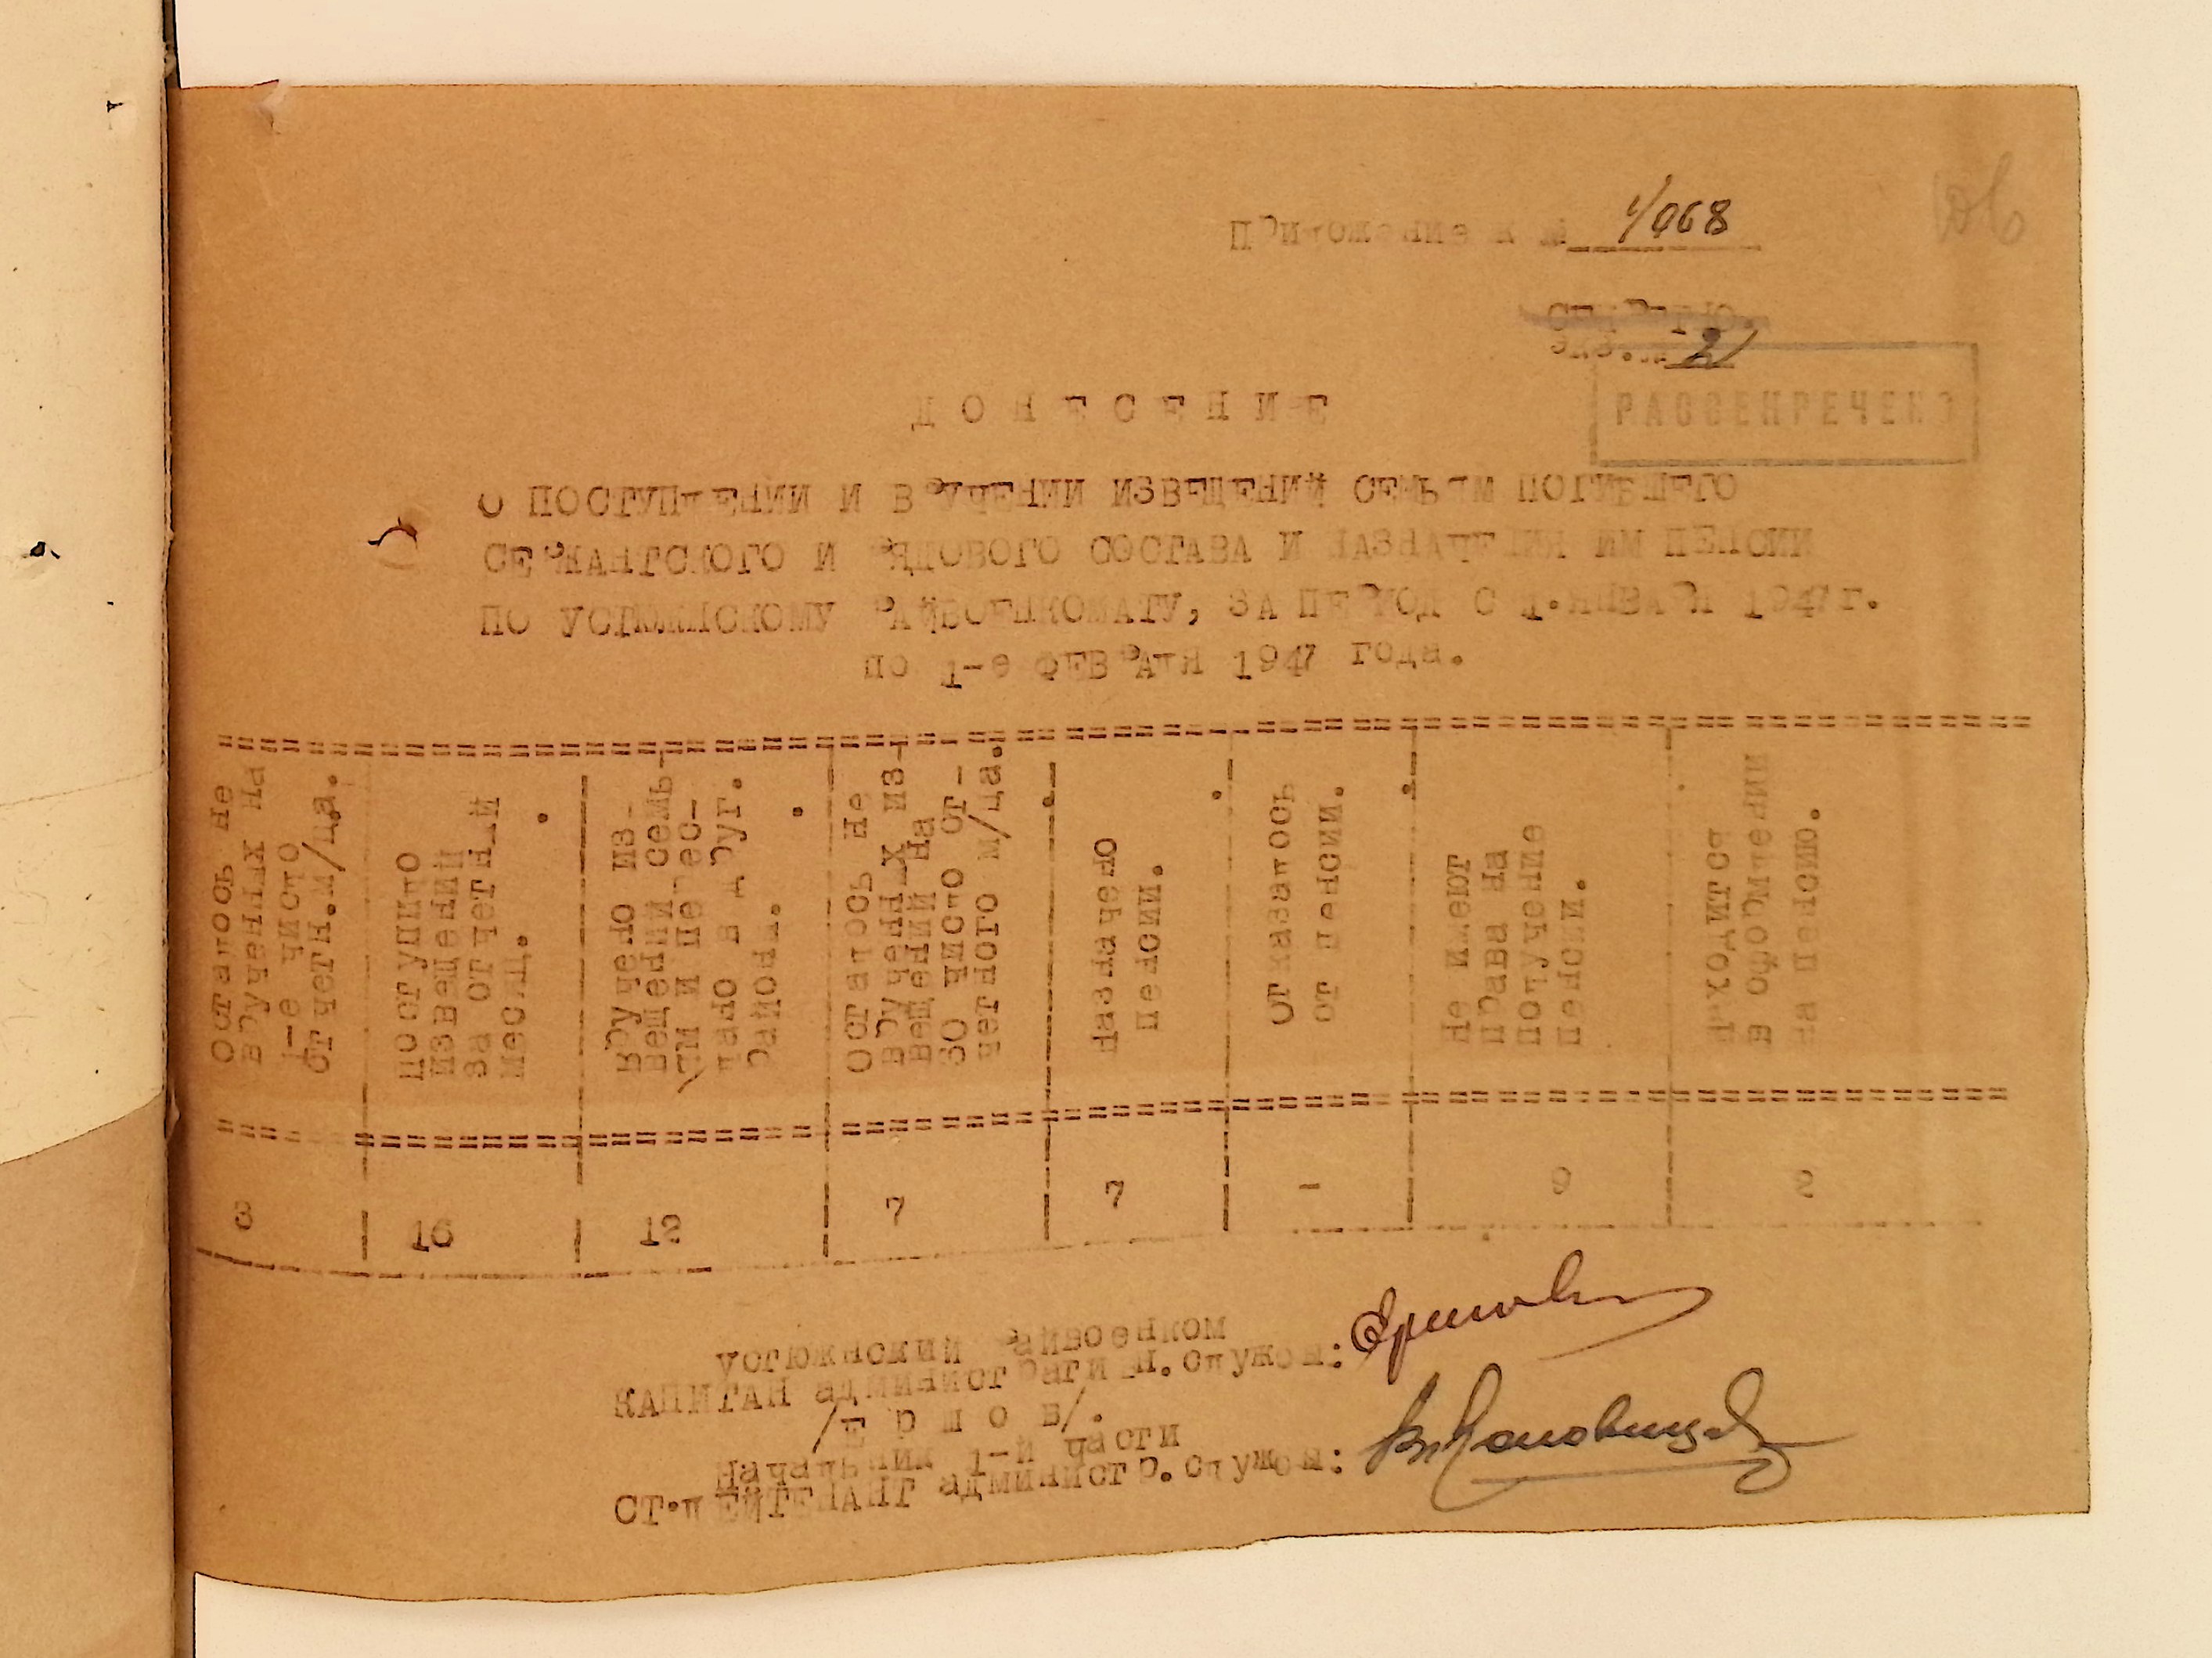 Приложение к № 1/068
СЕКРЕТНО.
Экз.№ 2
РАССЕКРЕЧЕНО
ДОНЕСЕНИЕ
О ПОСТУПЛЕНИИ И ВРУЧЕНИИ ИЗВЕЩЕНИЙ СЕМЬЯМ ПОГИБШЕГО
СЕРЖАНТСКОГО И РЯДОВОГО СОСТАВА И НАЗНАЧЕНИЯ ИМ ПЕНСИИ
ПО УСТЮЖЕНСКОМУ РАЙВОЕНКОМАТУ, ЗА ПЕРИОД С 1.ЯНВАРЯ 1947 г.
по 1-е ФЕВРАЛЯ 1947 года.
Осталось не
врученных на
1-е число
отчетн.м/ца.
поступило
извещений
за отчетный
месяц.
вручено из-
вещений семь-
ям и перес-
лано в друг.
районы.
осталось не
врученных из-
вещений на
30 число от-
четного м/ца.
назначено
пенсии.
отказалось
от пенсии.
не имеют
права на
получение
пенсии.
находится
в оформлении
на пенсию.
3
16
12
7
7
-
2
Устюженский райвоенком
КАПИТАН административ. службы:
/Е р ш о в/.
Начальник 1-й части
СТ.ЛЕЙТЕНАНТ администр.службы: